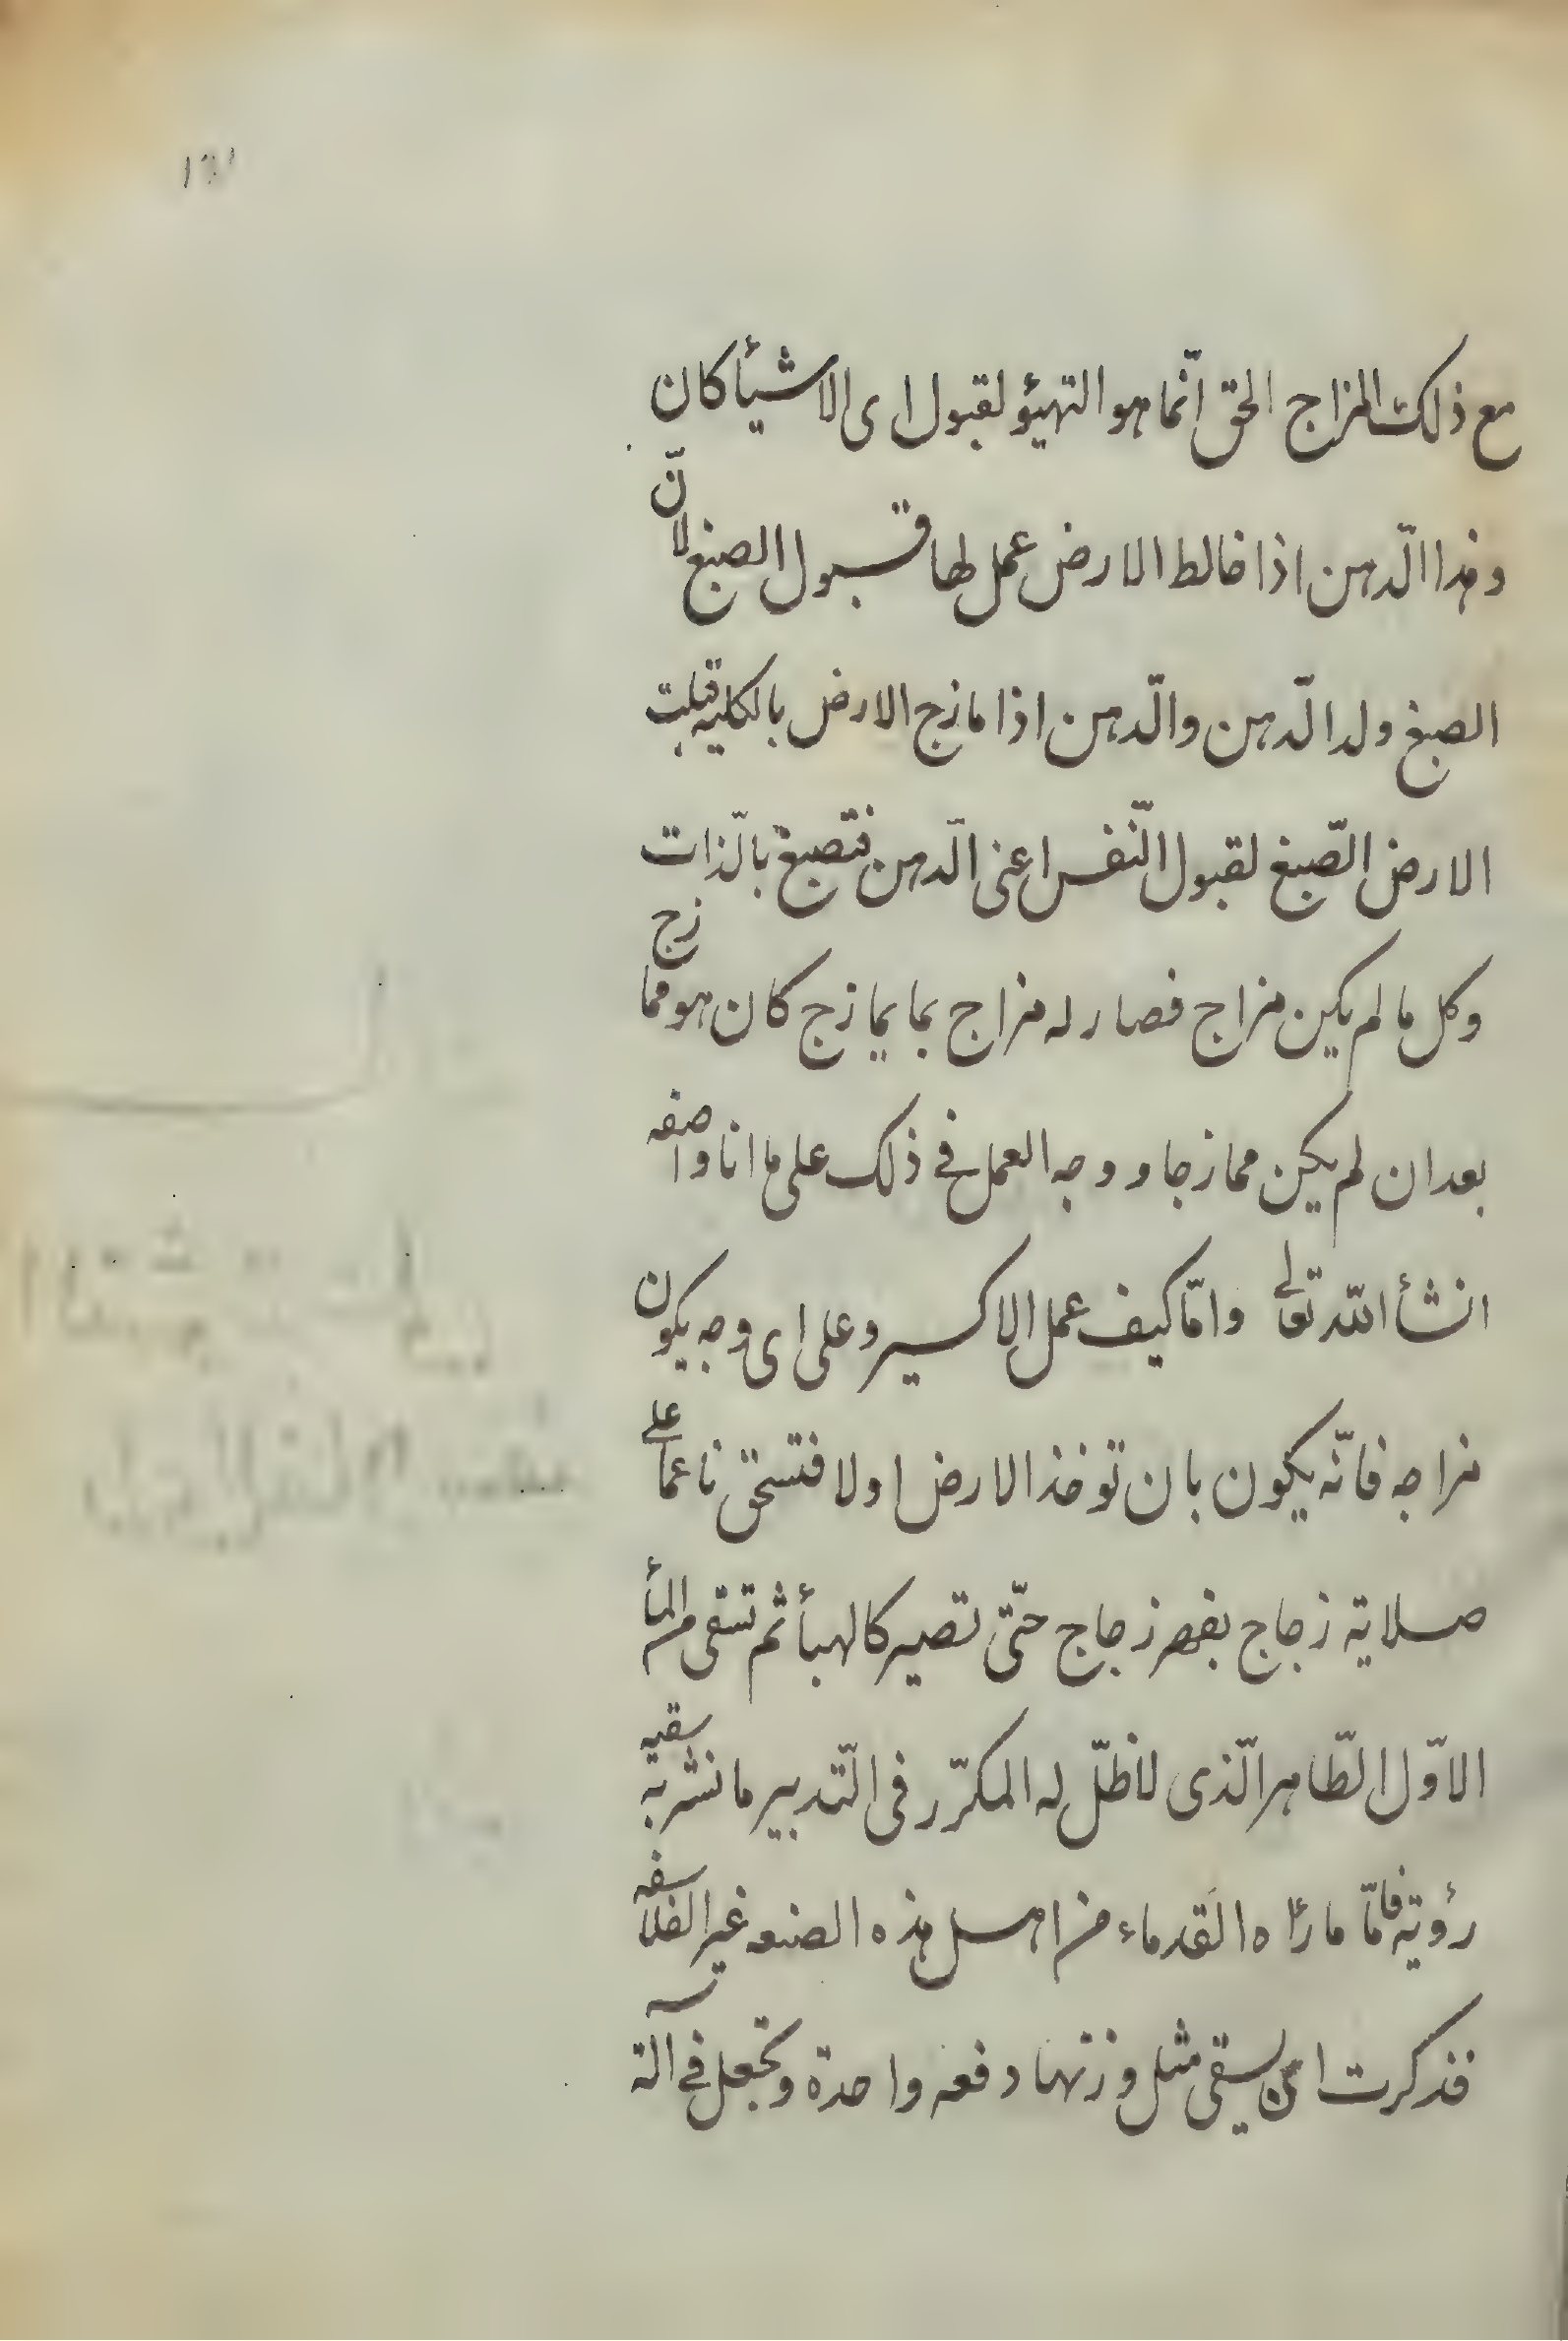 مع ذلك المزاج الحق انّما هو التهيؤ لقبول اى الاشيأ كان
وهذا الّدهن اذا خالط الارض عمل لها قبول الصبغ لانّ
الصبغ ولد الّدهن والّدهن اذا مازج الارض بالكليه قبلت
الارض الصّبغ لقبول النّفس اعنى الّدهن فتصبغ بالّذات
وكل ما لم يكن مزاج فصار له مزاج بما يمازج كان هو ممازج
بعد ان لم يكن ممازجا و وجه العمل فى ذلك على ما انا واصفه
انشأ اللّه تعالى وامّا كيف عمل الاكسير وعلى اى وجه يكون
مزاجه فانّه يكون بان توخذ الارض اولا فتسحق ناعما على
صلاية زجاج بفهر زجاج حتّى تصير كالهبأ ثم تسقى من المأ
الاوّل الطّاهر الّذى لاظلّ له المكرّر فى التّدبير ما نشر به سقيه
رؤيته فامّا ما رأه القدماء من اهل هذه الصنعه غير الفلاسفه
فذكرت ان يسقى مثل وزنها دفعه واحدة وتجعل فى آلة